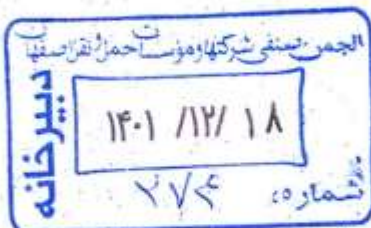 انجمن صنفی شرکتها و مؤسسات حمل و نقل اصفهان
دبیرخانه
۱۴۰۱ /۱۲/ ۱۸
شماره: ۲۷۴